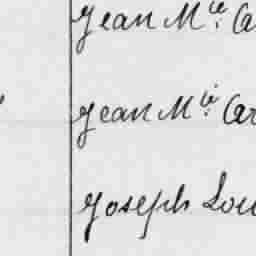 Jean Mce. Ca
Jean Mie. Car
Joseph Lou